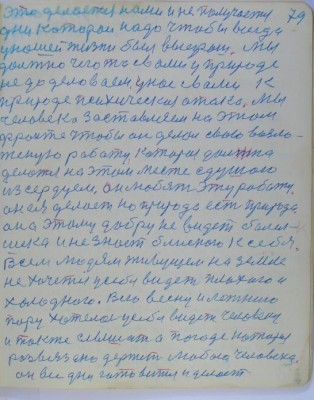 это делается нами и не получается 79
дни которая надо чтобы всегда
у нашей жизни были выиграш. Мы
должно часто с вами у природе
не до деловаем, у нас с вами к
природе психическая атака. Мы
человека заставляем на этом
фронте чтобы он делал свою возло-
женую работу, которая должна
делатся на этом месте с душою
и сердцем. он любят эту работу.
он ея делает но природа есть природа
она этому добру не видет
и не знает близкого к себе.
Всем людям живущем на земле
не хочется у себя видеть плохого и
холодного. Всю весну и летнию
пору хотелося у себя видеть человеку
и также слышать о погоде которая
развязано держит любого человека.
он все дни готовится и делает